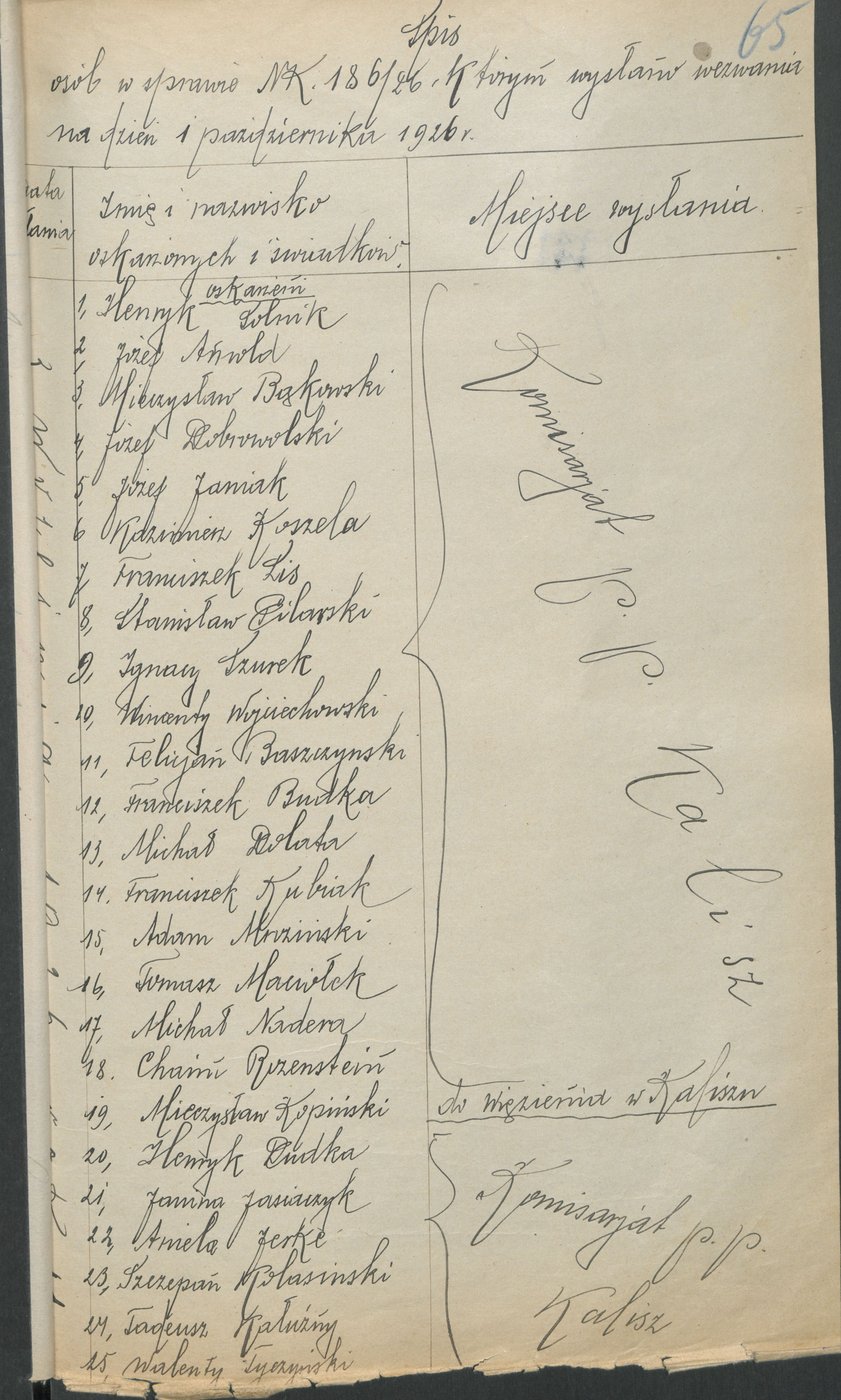 65
Spis
osób w sprawie NK. 186/26. którym wysłano wezwania
na dzień 1 października 1926 r.
Imię i nazwisko
oskarżonych i świadków
Miejsce wysłania.
oskarżeni
1, Henryk Solnik
2, Józef
3, Mieczysław Bąkowski
4, Józef Dobrowolski
5, Józef Janiak
6 Kazimierz Koszela
7, Franciszek Lis
8, Stanisław Pilarski
9, Ignacy Szurek
10, Wincenty Wojciechowski
11, Felicjan Baszczynski
12, Franciszek Budka
13, Michał Dolata
14. Franciszek Kubiak
15, Adam
16, Tomasz Maciołek
17, Michał Nadera
18. Chaim Rozenstein
19, Mieczysław Kopiński
20, Henryk Dudka
21, Janina Jasiaczyk
22, Aniela Jerke
23, Szczepan Kolasinski
24, Tadeusz Kałużny
25, Walenty Tyczyński
Komisarjat P. P. Kalisz
do więzienia w Kaliszu
Komisarjat p. p.
Kalisz